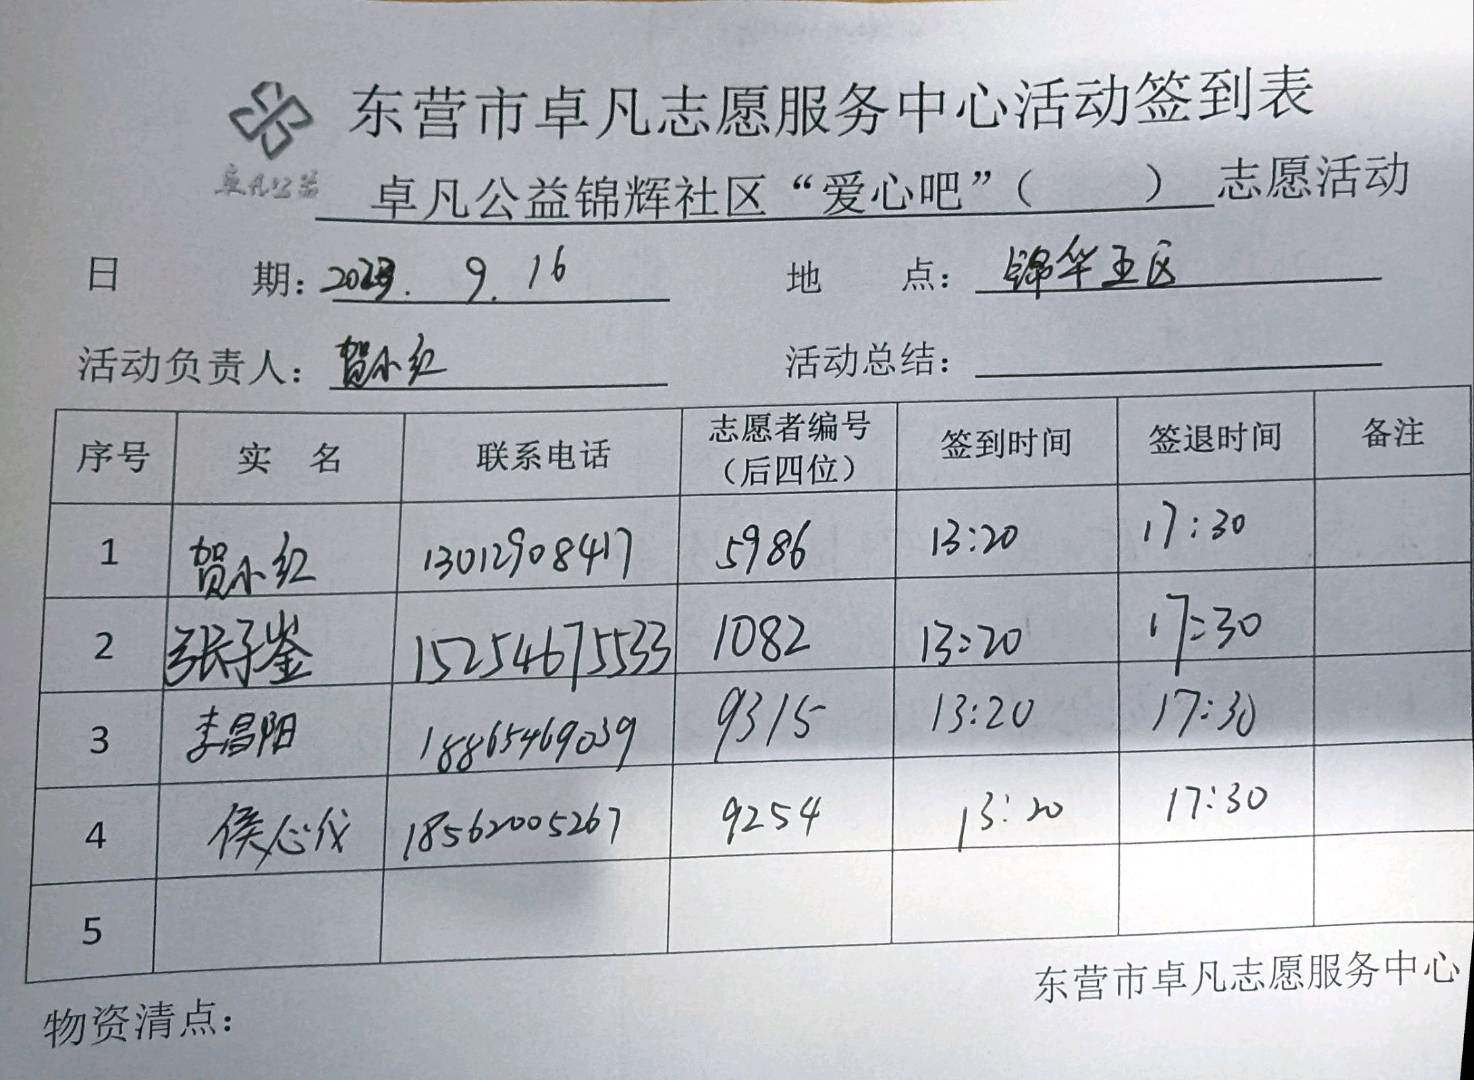 东营市卓凡志愿服务中心活动签到表
卓凡公益
卓凡公益锦辉社区“爱心吧”（ ）志愿活动
日 期： 2023. 9. 16 地 点： 锦华五区
活动负责人： 贺小红 活动总结：
序号 实 名 联系电话 志愿者编号（后四位） 签到时间 签退时间 备注
1 贺小红 13012908417 5986 13:20 17:30
2 张子鉴 15254675533 1082 13:20 17:30
3 李昌阳 18865469039 9315 13:20 17:30
4 侯心仪 18562005267 9254 13:20 17:30
5
东营市卓凡志愿服务中心
物资清点：